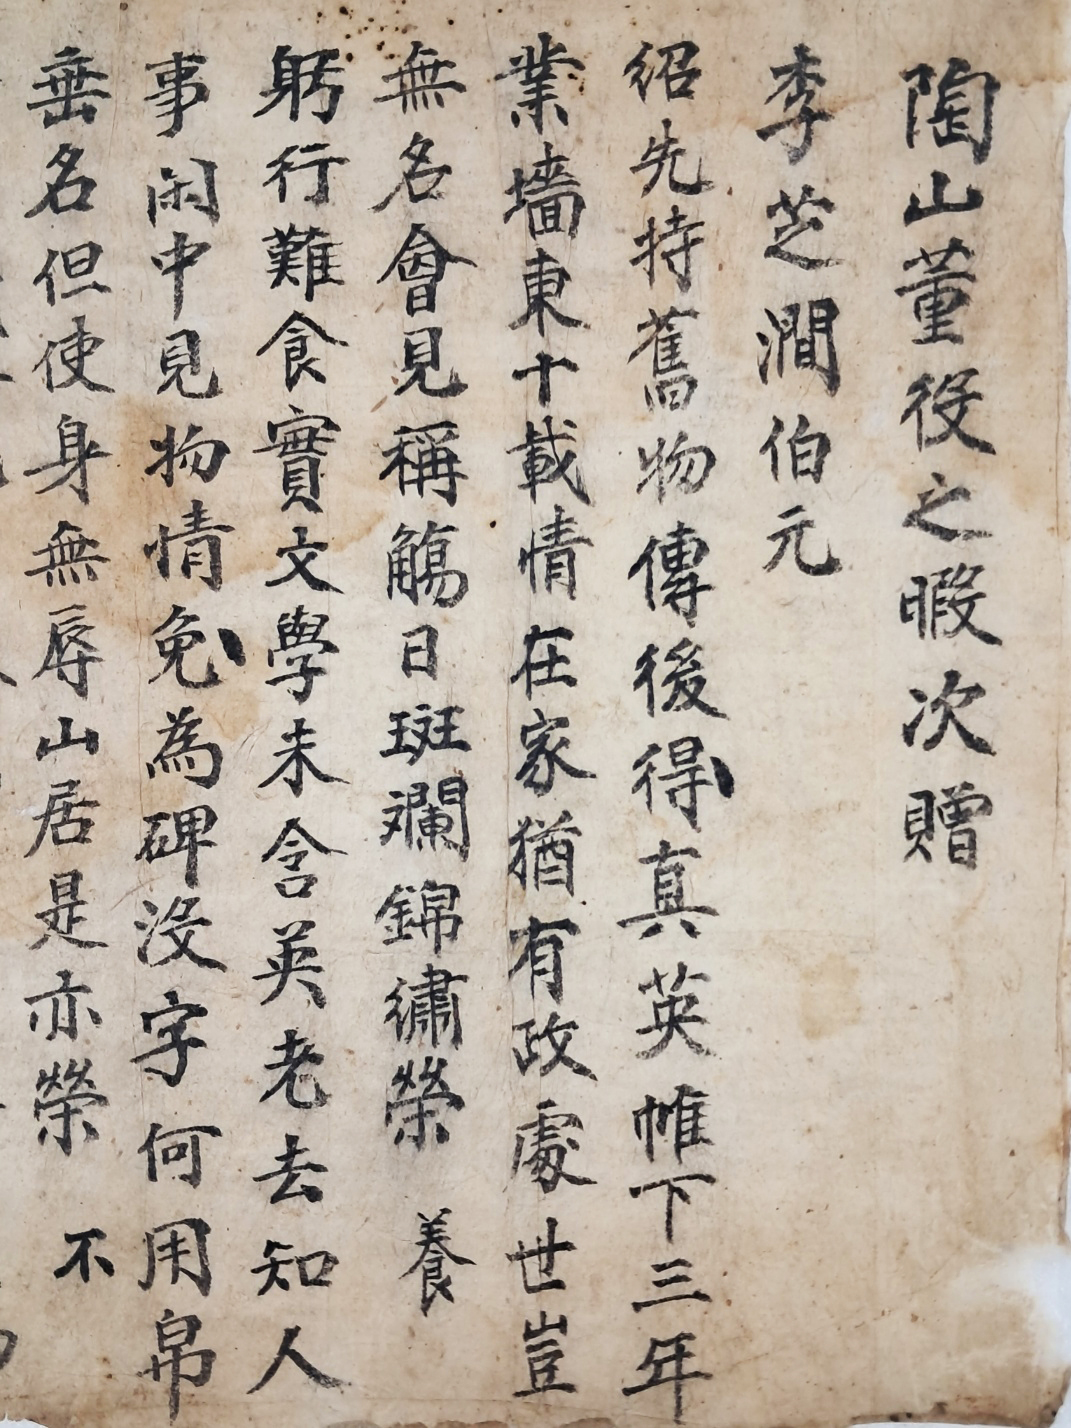 陶山董役之暇次贈
李芝澗伯元
紹先持舊物傳後得真英帷下三年
業墻東十載情在家猶有政處世豈
無名會見稱觴日斑斕錦繡榮 養
躬行難食實文學未含英老去知人
事閑中見物情免為碑沒字何用帛
垂名但使身無辱山居是亦榮 不